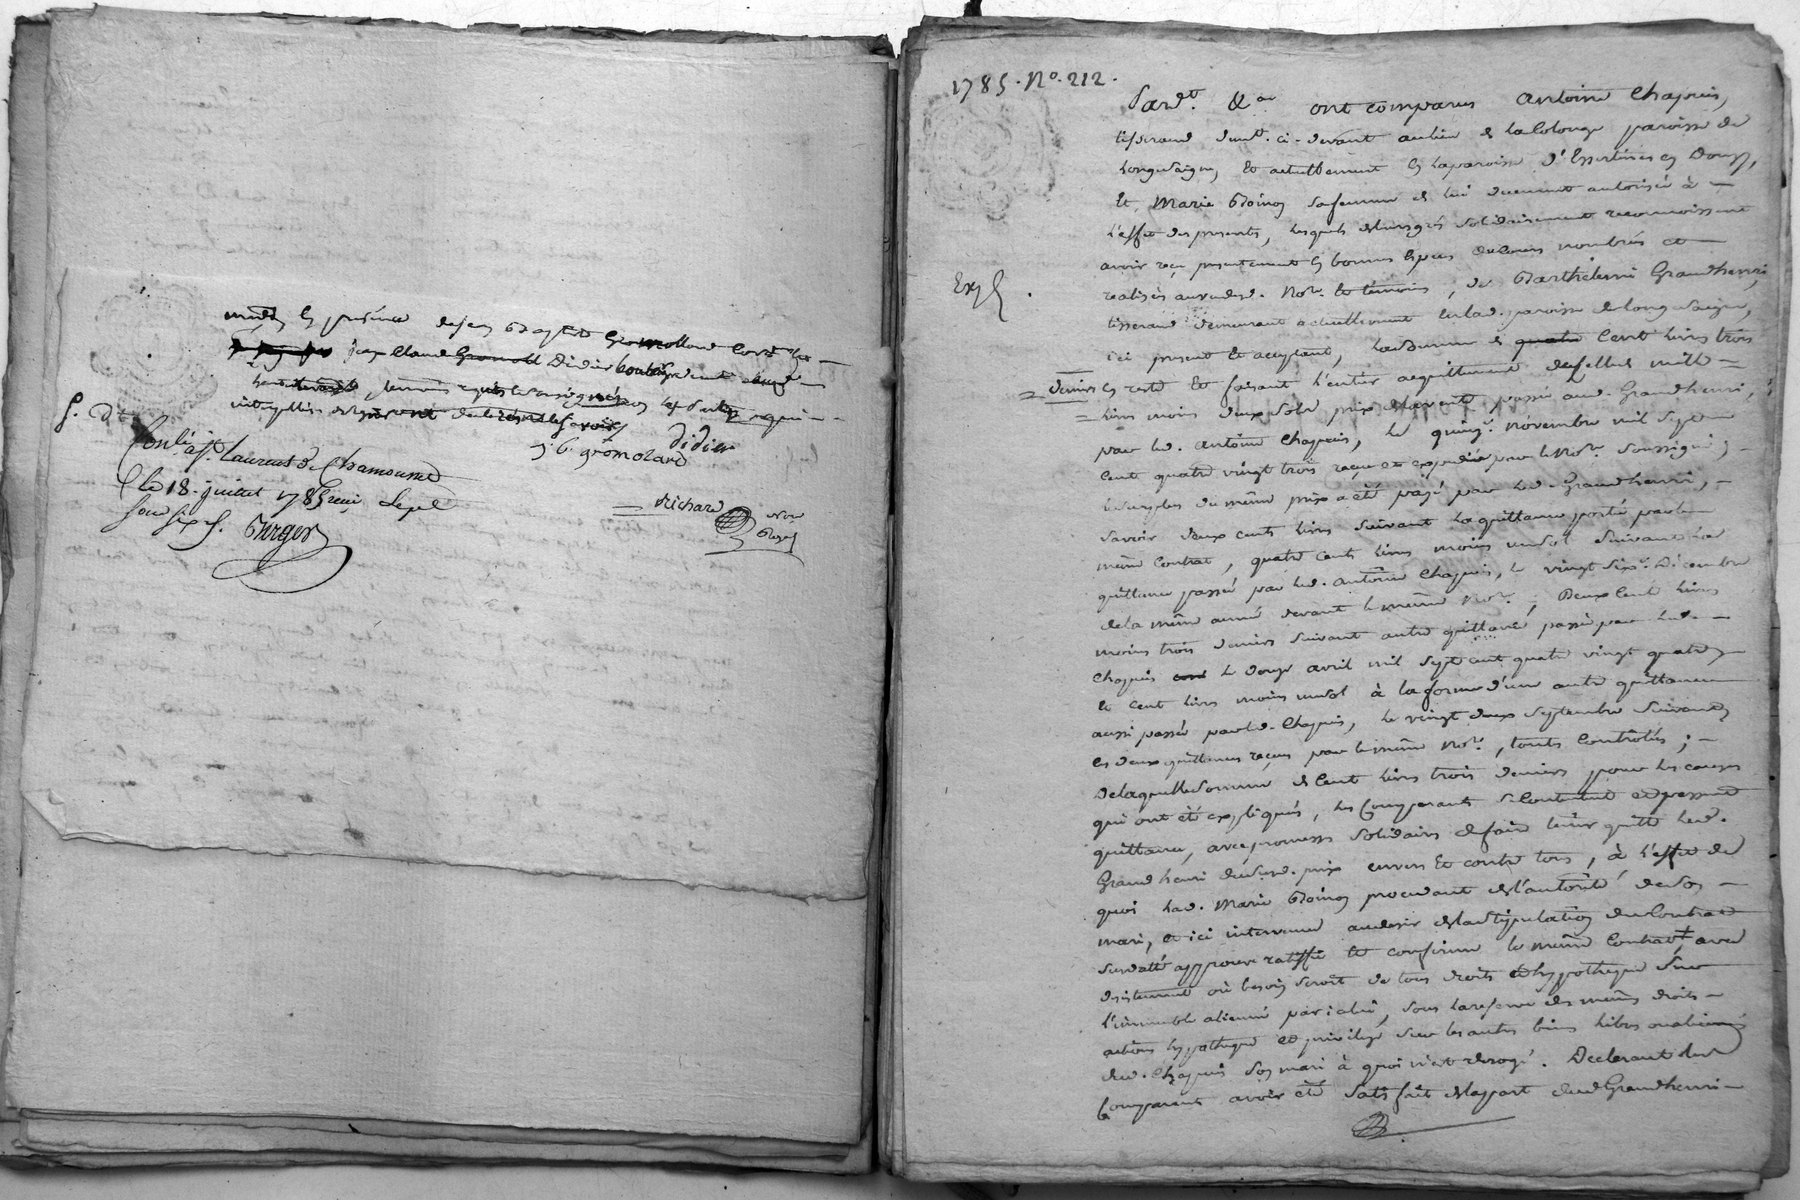 en présence de Jean Baptiste Gromollard
Jean Claude Didier
témoins requis
J. B. gromolard Didier
Conlé à St Laurent de Chamousset
le 18. juillet 1785 reçu
sous six s. Burger
Richard Nore
Royal
1785. No. 212.
Pardt. &a ont comparus Antoine Chapuis,
tisserand demt. ci-devant au lieu de la Colonge paroisse de
Longesaigne, et actuellement en la paroisse d'Essertines en Donzy,
et Marie Poinos sa femme de lui duement autorisée à
l'effet des presentes, lesquels de leurs grés solidairement reconnoissent
avoir reçu presentement en bonnes especes de cours nombrées et
realisées aux nord. Nore. et témoins, de Barthelemi Grandhenri,
Expé.
tisserand demeurant actuellement en lad. paroisse de Longesaigne,
ici present et acceptant, la somme de cent livres trois
deniers en reste et faisant l'entier acquittement de celle de mille
livres moins deux sols, prix de la vente passée aud. Grandhenri,
par led. Antoine Chapuis, le quinze novembre mil sept
cent quatre vingt trois reçue et expediée par le Nore. soussigné;
le surplus du même prix a été payé par led. Grandhenri,
savoir deux cents livres suivant la quittance portée par le
même contrat, quatre cents livres moins un sol suivant la
quittance passée par led. Antoine Chapuis, le vingt six Décembre
de la même année devant le même Nore., Deux cent livres
moins trois deniers suivant autre quittance passée par led.
Chapuis le douze avril mil sept cent quatre vingt quatre,
et cent livres moins un sol à la forme d'une autre quittance
aussi passée par led. Chapuis, le vingt deux septembre suivant,
les deux quittances reçues par le même Nore., toutes contrôlées;
De laquelle somme de cent livres trois deniers pour les causes
qui ont été expliquées, les comparants se contentent et passent
quittance, avec promesse solidaire de faire tenir quitte led.
Grandhenri dud. prix envers et contre tous, à l'effet de
quoi lad. Marie Poinos procedant de l'autorité de son
mari, et ici intervenue au desir de la stipulation du contrat
susdatté approuve ratiffie et confirme le même contrat, avec
desistement où besoin seroit de tous droits et hypotheque sur
l'immeuble aliené par icelui, sous la reserve des mêmes droits
actions hypotheque et privilege sur les autres biens libres ou alienés
dud. Chapuis son mari à quoi n'est derogé. Declarant led.
Comparant avoir été satisfait de la part dud. Grandhenri